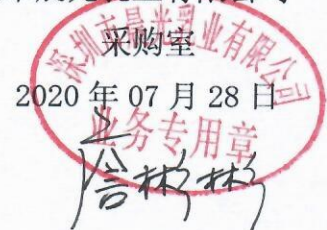 采购室
2020 年 07 月 28 日
深圳市晨光乳业有限公司
业务专用章